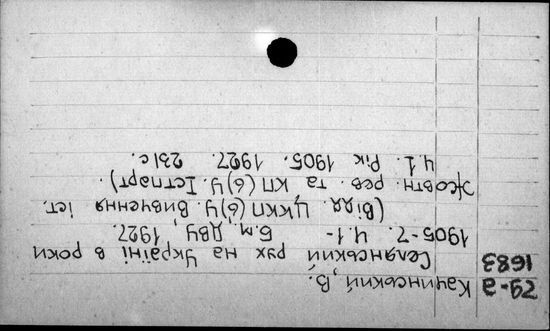 79-а Качинський, В.
1683
Селянський рух на Україні в роки
1905-7. Ч.1-
Б.м. ДВУ, 1927.
(Відд. ЦККП(б)У. Вивчення іст.
Жовтн. рев. та КП(б)У. Істпарт)
Ч.1. Рік 1905. 1927. 231с.